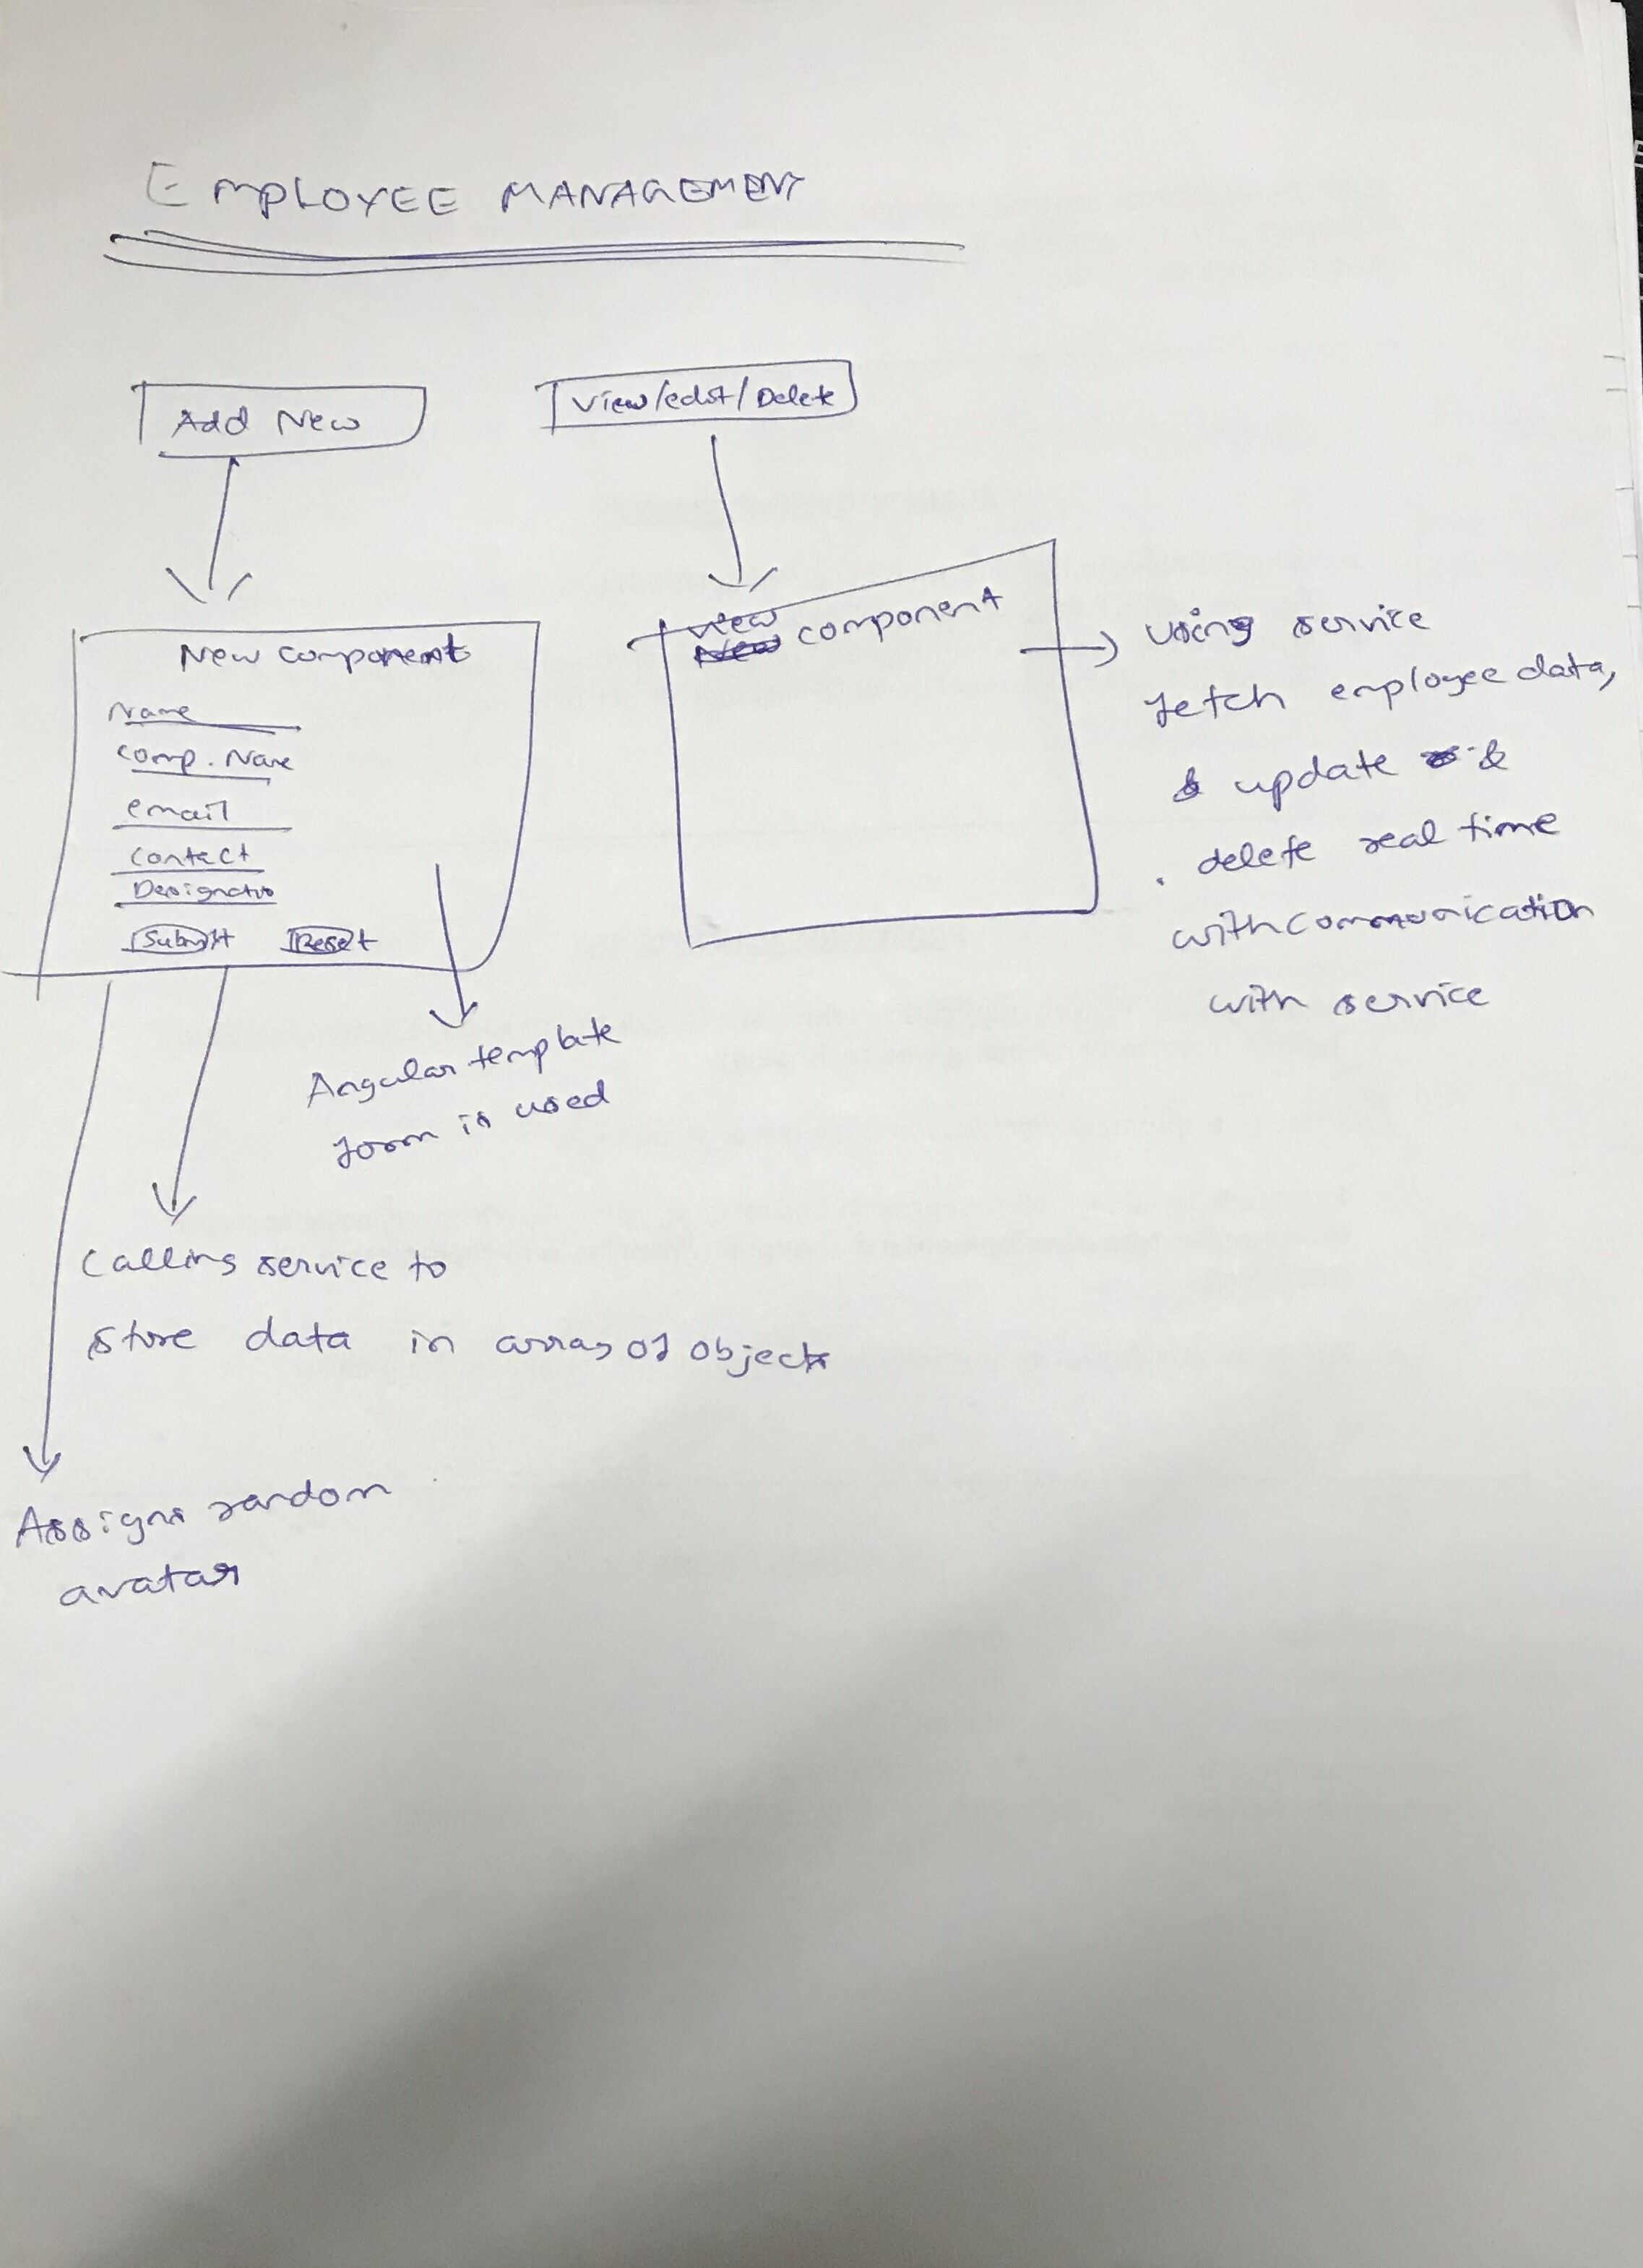 EMPLOYEE MANAGEMENT
Add New
View/edit/Delete
New component
Name
Comp. Name
email
Contact
Submit Reset
View
component
using service
fetch employee data,
& update &
delete real time
with communication
with service
Angular template
form is used
Calling service to
store data in array of objects
Assigns random
avatar